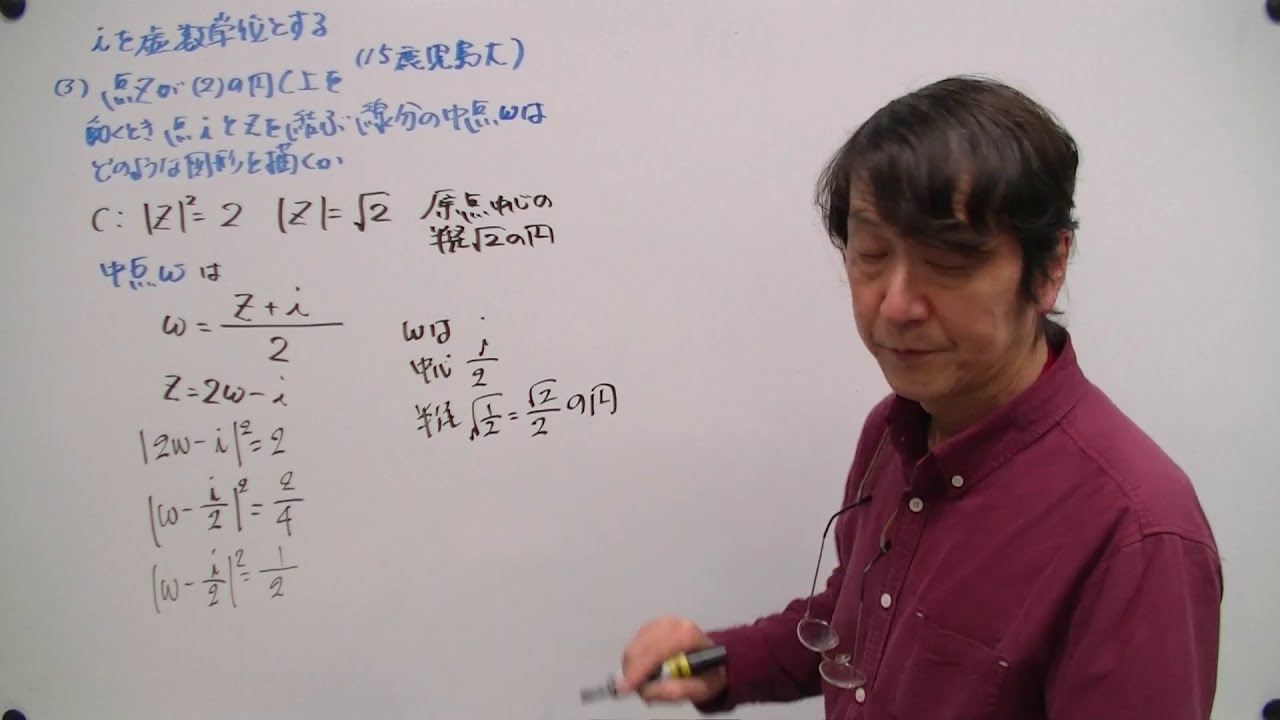 iを虚数単位とする
(15鹿児島大)
(3) 点Zが(2)の円C上を
動くとき点iとZを結ぶ線分の中点ωは
どのような図形を描くか
C: |Z|²=2 |Z|=√2 原点中心の
半径√2の円
中点ωは
ω=(Z+i)/2
Z=2ω-i
|2ω-i|²=2
|ω-i/2|²=2/4
|ω-i/2|²=1/2
ωは
中心 i/2
半径√(1/2)=√2/2の円